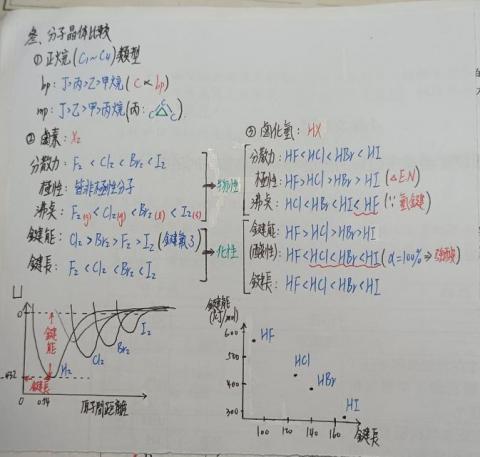 叁、分子晶体比較
① 正烷(C₁~C₄)類型
bp: 丁>丙>乙>甲烷 (C ∝ bp)
mp: 丁>乙>甲>丙烷 (丙: C C C)
② 鹵素: X₂
分散力: F₂ < Cl₂ < Br₂ < I₂
極性: 皆非極性分子
沸點: F₂(g) < Cl₂(g) < Br₂(l) < I₂(s)
→物性
鍵能: Cl₂ > Br₂ > F₂ > I₂ (鍵氟3)
鍵長: F₂ < Cl₂ < Br₂ < I₂
→化性
③ 鹵化氫: HX
分散力: HF < HCl < HBr < HI
極性: HF > HCl > HBr > HI (△EN)
沸點: HCl < HBr < HI < HF (∵氫鍵)
鍵能: HF > HCl > HBr > HI
(酸性): HF < HCl < HBr < HI (α=100% ⇒ 強酸)
鍵長: HF < HCl < HBr < HI
U
0
鍵能
-432
鍵長
H₂
Cl₂
Br₂
I₂
0
0.74
原子間距離
鍵能
(kJ/mol)
600
500
400
300
HF
HCl
HBr
HI
100 120 140 160
鍵長